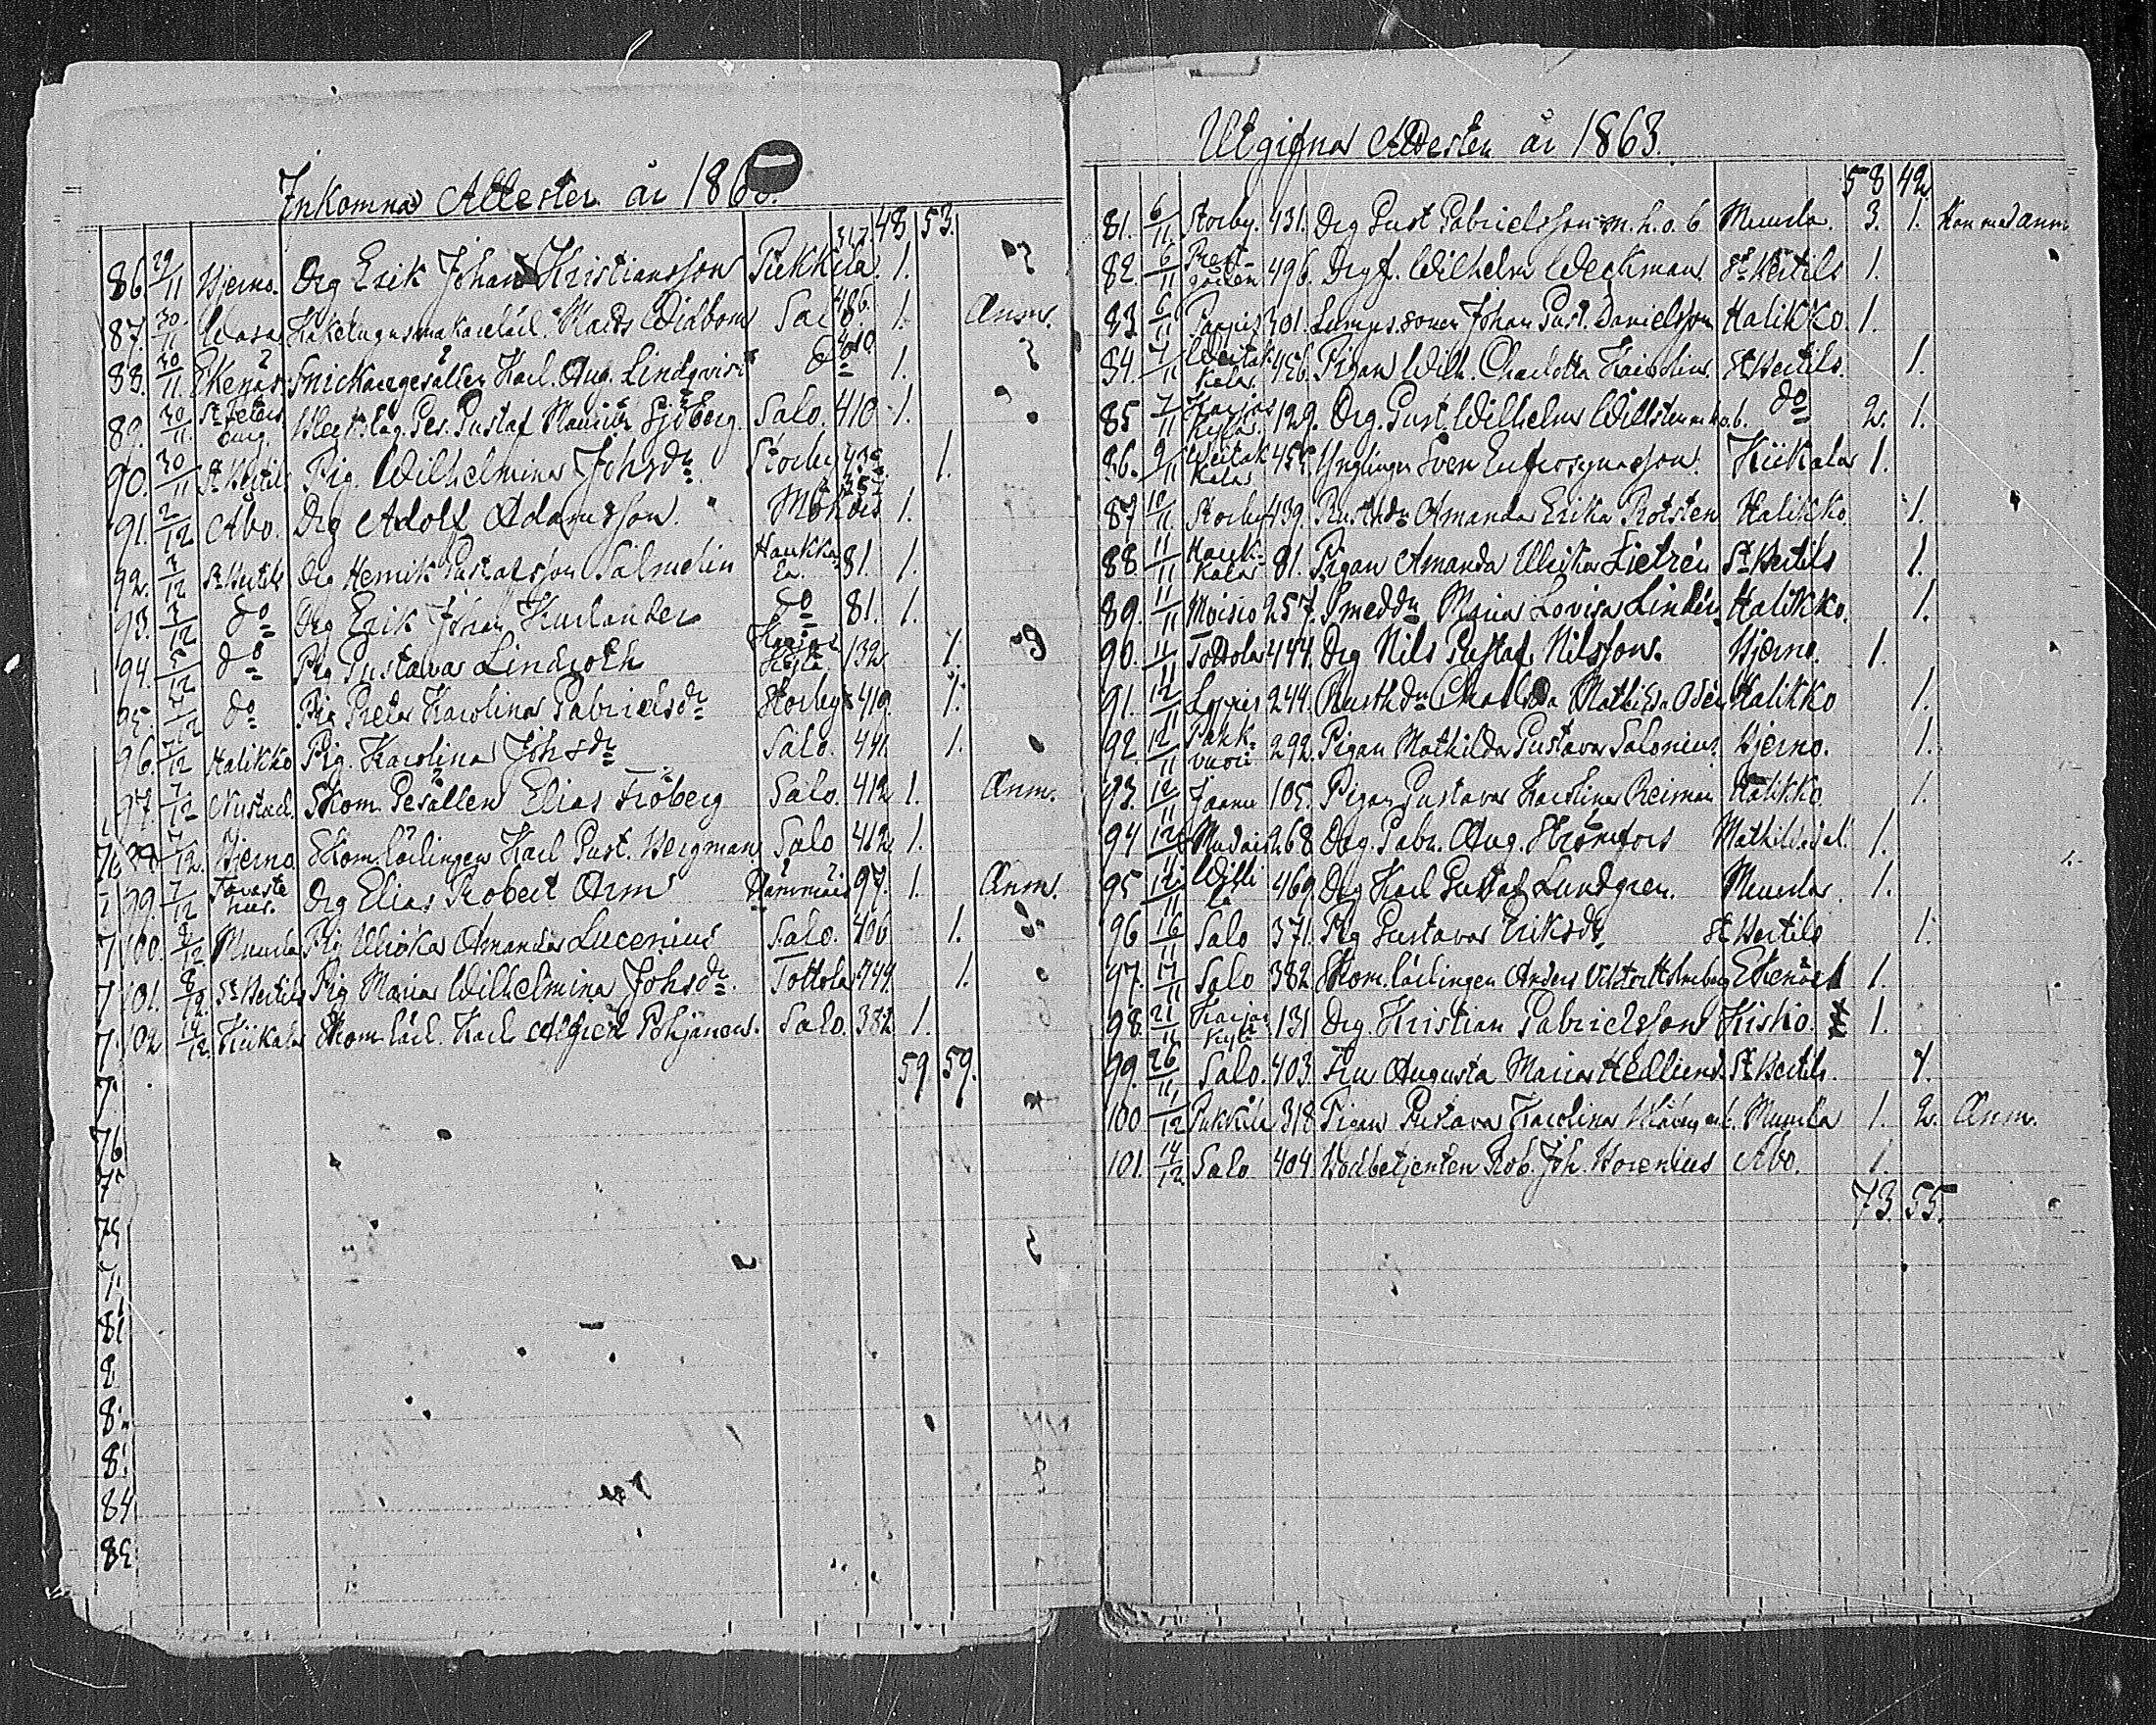 Inkomna Attester år 186
48. 53.
86. 29/11 Bjerno. Drg Erik Johan Kristiansson Pukkila 317. 1.
87. 30/11 Wasa Mats Widbom Salo 486. 1. Anm.
88. 30/11 Ekenäs Snickaregesällen Karl. Aug. Lindqvist do 410. 1.
89. 30/11 St Petersburg. Gustaf Sjöberg. Salo. 410 1.
90. 30/11 St Bertils Pig. Wilhelmina Johsdr. Storby 1.
91. 2/12 Abo. Drg Adolf Adamsson. 1.
92. 3/12 St Bertils Drg Henrik Gustafsson Salmelin Haukkala. 81. 1.
93. 3/12 do Drg Erik Johan Kurlander do 81. 1.
94. 5/12 do Pig Gustava Lindroth Karjaskylä 132 1.
95. 7/12 do Pig Greta Karolina Gabrielsdr Storby 419. 1.
96. 7/12 Halikko Pig. Karolina Johsdr Salo. 441. 1.
97. 7/12 Nystad. Skom. Gesällen Elias Fröberg Salo. 412 1. Anm.
98. 7/12. Bjerno Skom. lärlingen Karl Gust. Bergman Salo 412 1.
99. 7/12 Tavastehus. Drg Elias Robert Arm Hämmäis 97. 1. Anm.
100. 8/12 Muurla Pig Ulrika Amanda Lucenius Salo. 406 1.
101. 8/12. St Bertils Pig Maria Wilhelmina Johsdr. Tottola 444. 1.
102 14/12. Kiikala Skom. lärl. Karl Alfred Pohjanen. Salo. 382 1.
59. 59.
76
81
84
Utgifna Attester år 1863.
58 42
81. 6/11 Storby. 431. Drg Gust Gabrielsson m. h. o. b Muurla. 3. 1. Han med anm
82. 6/11 Prestgården 496. Drgf. Wilhelm Weckman St Bertils 1.
83 6/11 301. Johan Gust. Danielsson Halikko. 1.
84. 7/11 Weitakkala. 456. Pigan Wilh. Charlotta St Bertils. 1.
85 7/11 Karjaskylä. 129. Drg. Gust. Wilhelm Willsten m h o. b. do 2. 1.
86. 9/11 Weitakkala 455. Ynglingen Sven Eufrosynasson. Kiikala 1.
87 10/11 Storby 439. Rusthdr Amanda Erika Rotsten Halikko. 1.
88. 11/11 Haukkala 81. Pigan Amanda Ulrika Lietzén St Bertils 1.
89. 11/11 Moisio 257. Smeddr Maria Lovisa Lindén. Halikko. 1.
90. 11/11 Tottola 444. Drg Nils Gustaf Nilsson. Bjerno. 1.
91. 12/11 244. Rusthdr Charlotta Mathilda Odén Halikko 1.
92. 12/11 Pahkavuori 292. Pigan Mathilda Gustava Salonius Bjerno. 1.
93. 12/11 Joensu 105. Pigan Gustava Karolina Reiman Halikko. 1.
94 12/11 268 Drg. Gabr. Aug. Strömfors Mathildedal. 1.
95 12/11 469. Drg Karl Gustaf Lundgren. Muurla. 1.
96 16/11 Salo 371. Pig Gustava Eriksdr St Bertils 1.
97. 17/11 Salo 382. Skom. lärlingen Anders Viktor Holmberg Ekenäs 1.
98. 21/11 Karjaskylä 131 Drg. Kristian Gabrielsson Kisko. 1.
99. 26/11 Salo. 403. Fru Augusta Maria Hedlund. St Bertils. 1.
100 1/12 Pukkila 318 Pigan Gustava Karolina m. b. Muurla 1. 2. Anm.
101. 14/12. Salo 404. Wodbetjenten Rob. Joh. Borenius Abo. 1.
73. 55.